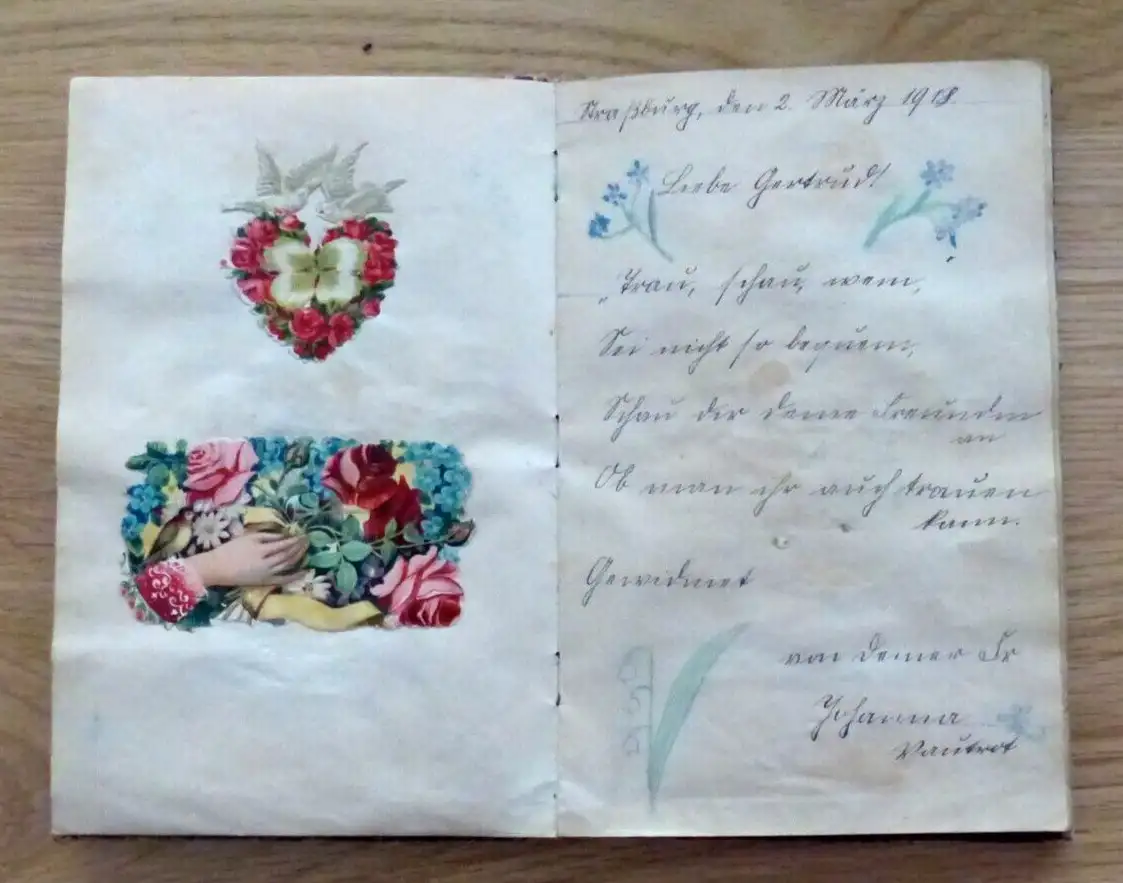 Straßburg, den 2. März 1918.
Liebe Gertrud!
„Trau, schau, wem,
Sei nicht so bequem,
Schau dir deine Freundin
an
Ob man ihr auch trauen
kann.
Gewidmet
von deiner Fr
Johanna
Vautrot